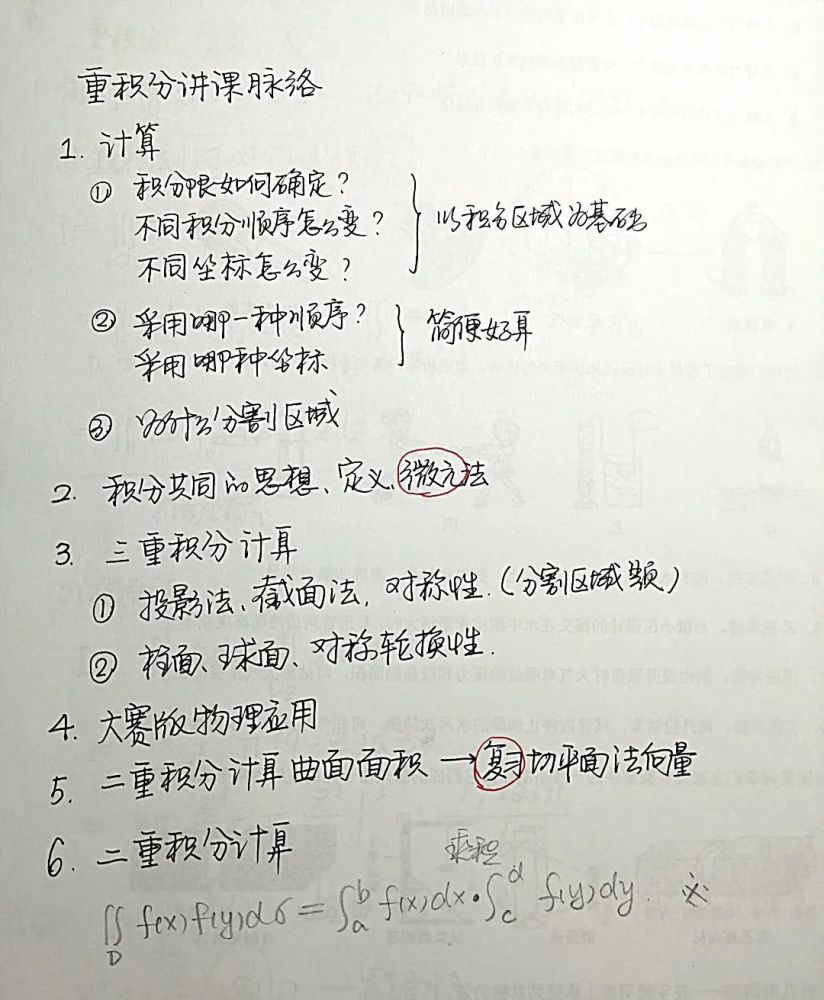 重积分讲课脉络
1. 计算
① 积分限如何确定?
不同积分顺序怎么变?
不同坐标怎么变?
以积分区域为基础
② 采用哪一种顺序?
采用哪种坐标
简便好算
③ 为什么分割区域
2. 积分共同的思想、定义、微元法
3. 三重积分计算
① 投影法、截面法, 对称性. (分割区域题)
② 柱面、球面、对称轮换性.
4. 大赛版物理应用
5. 二重积分计算曲面面积 → 复习切平面法向量
6. 二重积分计算
乘积
∬_D f(x)f(y)dσ = ∫_a^b f(x)dx·∫_c^d f(y)dy. ※